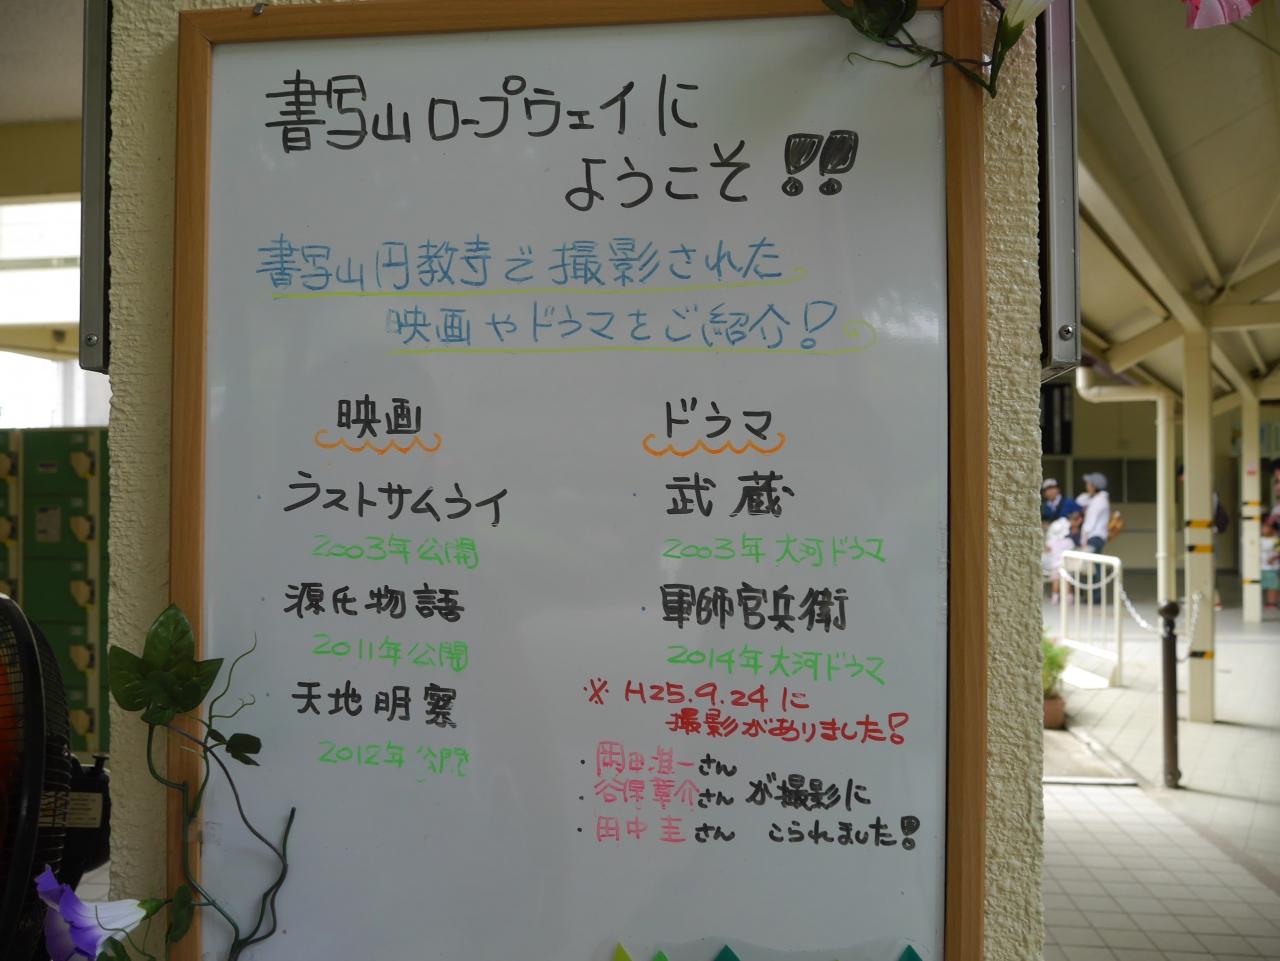 書写山ロープウェイに
ようこそ!!
書写山円教寺で撮影された
映画やドラマをご紹介!
映画
ラストサムライ
2003年公開
源氏物語
2011年公開
天地明察
2012年公開
ドラマ
武蔵
2003年大河ドラマ
軍師官兵衛
2014年大河ドラマ
※H25.9.24に
撮影がありました!
・岡田准一さん
・谷原章介さん が撮影に
・田中圭さん こられました!